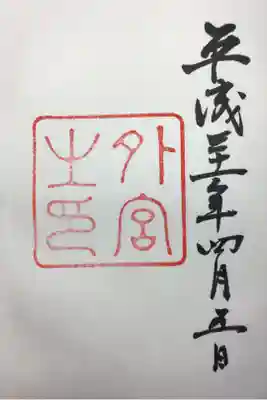 平成三十一年四月五日
外宮
之印